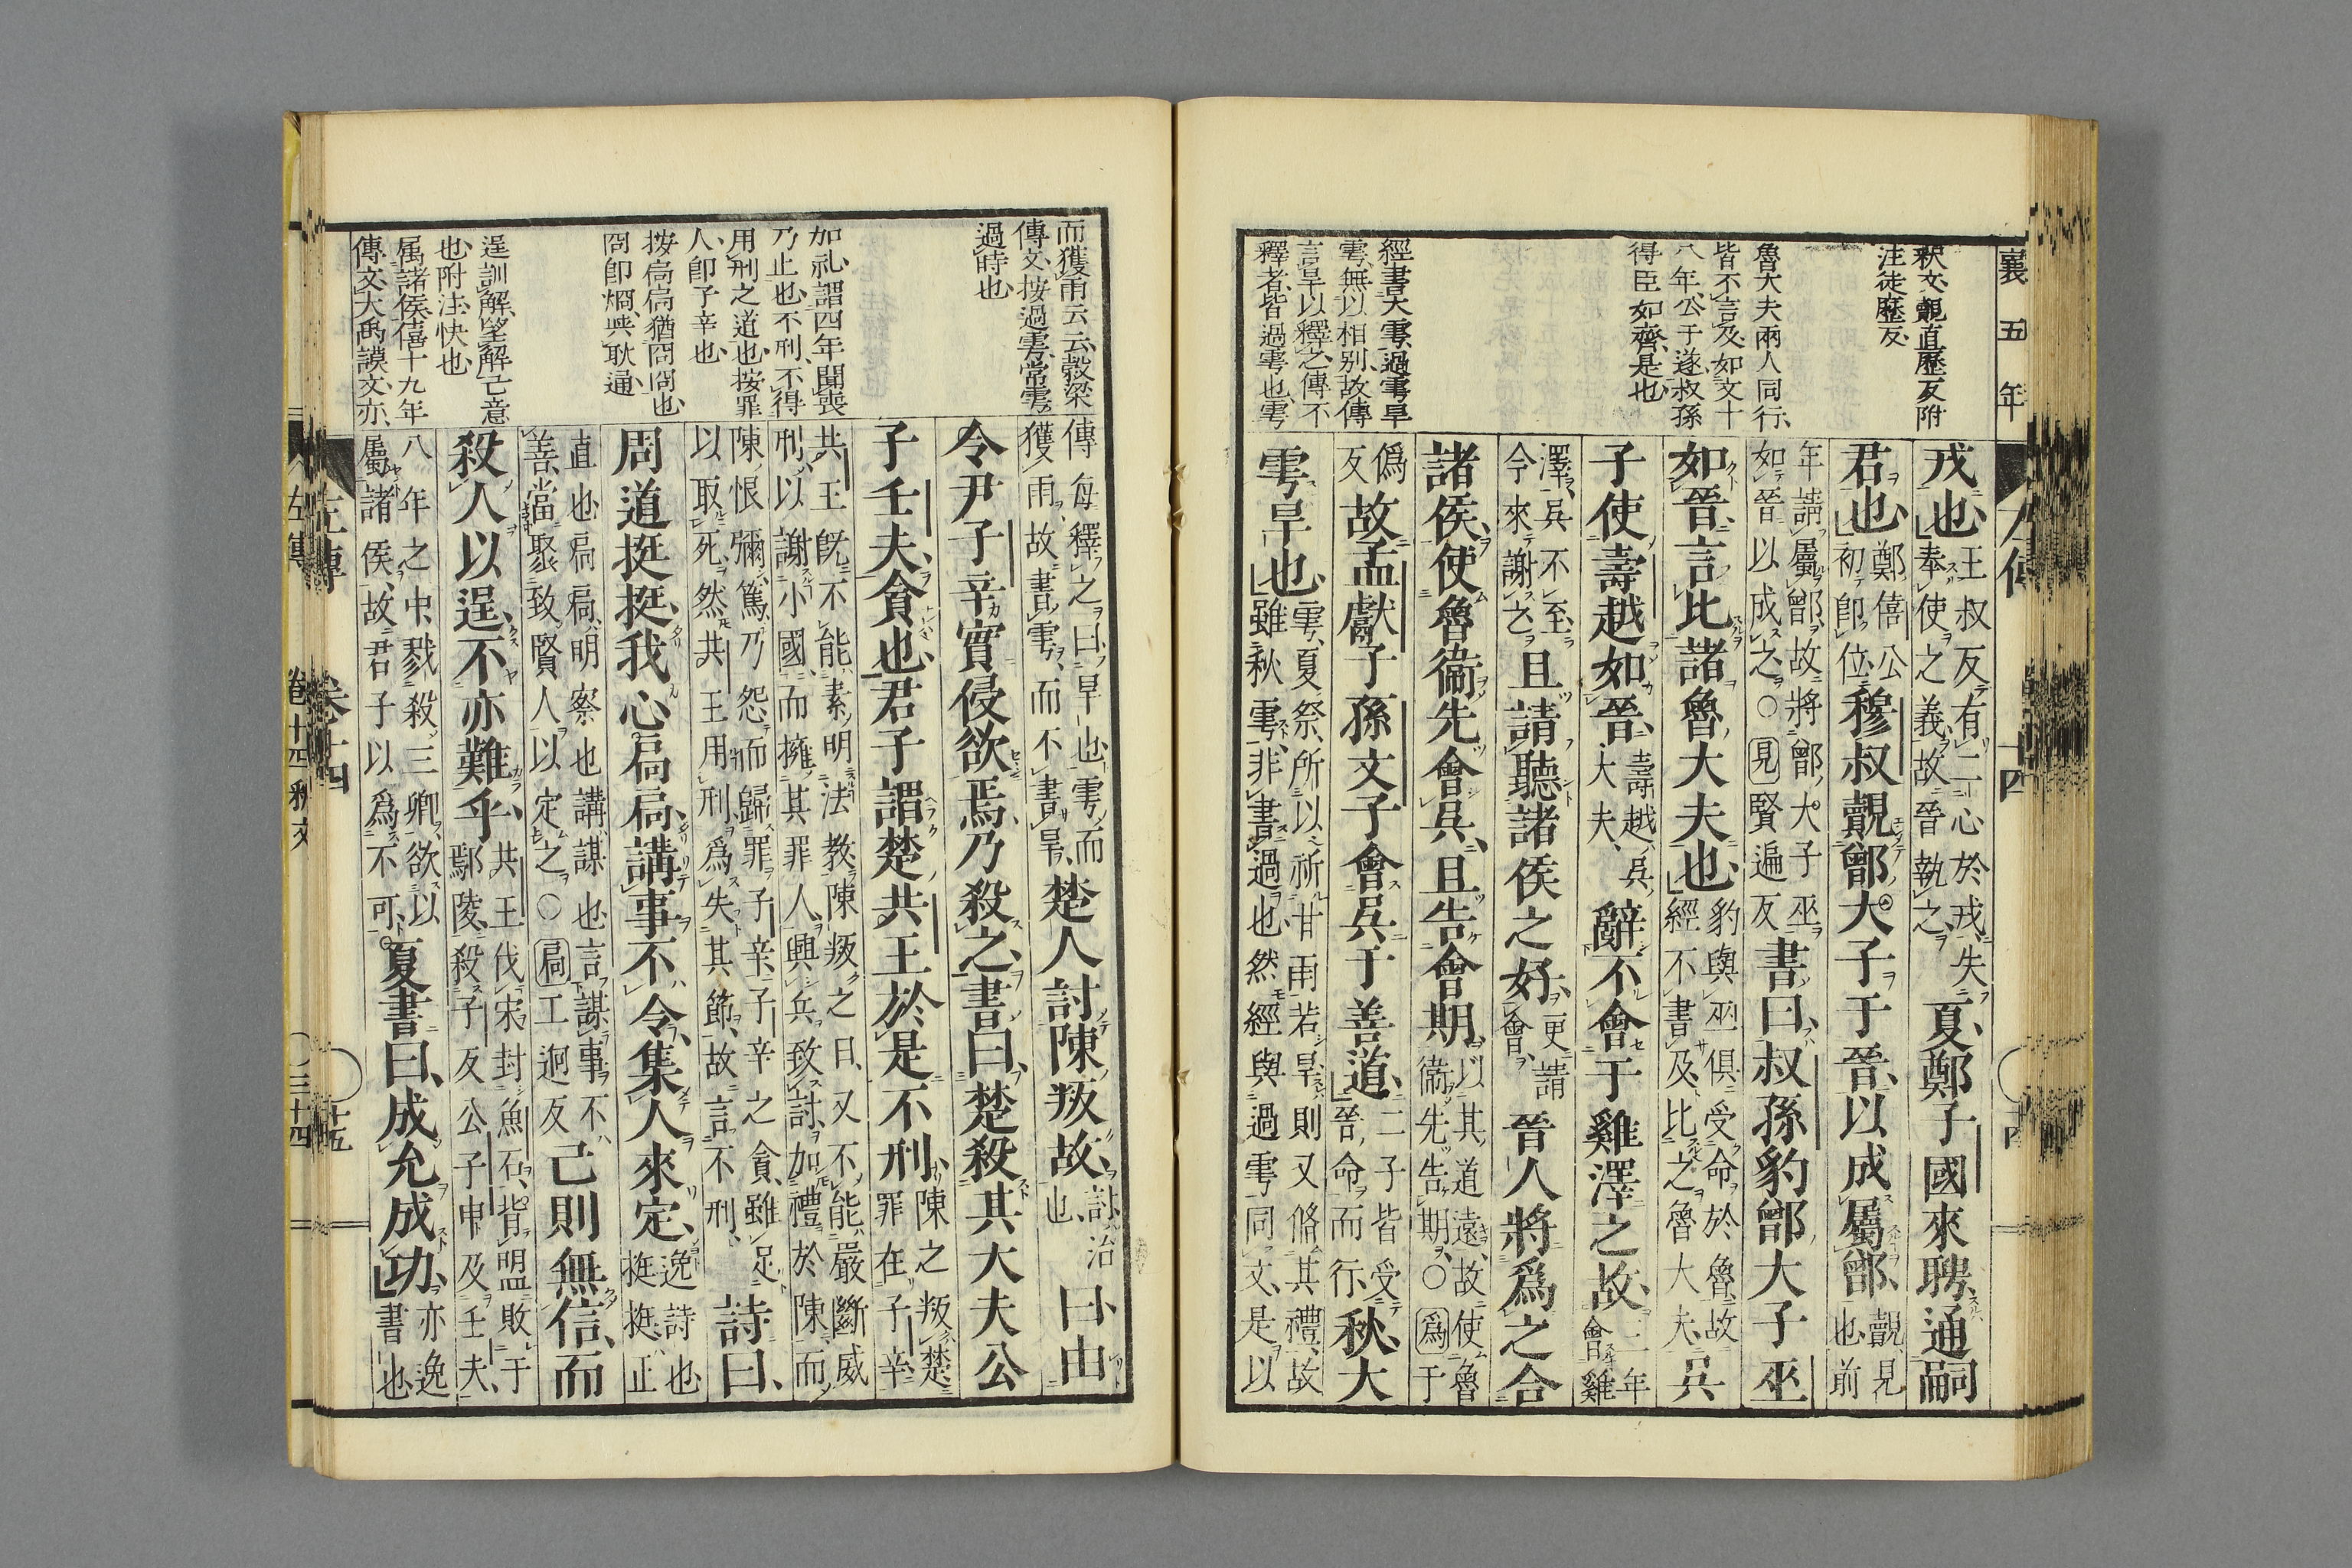 襄五年
釈文覿直歴反附
注徒歴反
魯大夫兩人同行
皆不言及如文十
八年公子遂叔孫
得臣如齊是也
經書大雩過雩旱
雩無以相别故傳
言旱以釋之傳不
釋者皆過雩也雩
戎也王叔反有二心於戎失奉使之義故晉執之夏鄭子國來聘通嗣
君也鄭僖公初卽位穆叔覿鄫大子于晉以成屬鄫覿見也前
年請屬鄫故將鄫大子巫如晉以成之○見賢遍反書曰叔孫豹鄫大子巫
如晉言比諸魯大夫也豹與巫俱受命於魯故經不書及比之魯大夫吳
子使壽越如晉壽越吳大夫辭不會于雞澤之故三年會雞
澤吳不至今來謝之且請聽諸侯之好更請會晉人將爲之合
諸侯使魯衞先會吳且告會期以其道遠故使魯衞先告期○爲于
僞反故孟獻子孫文子會吳于善道二子皆受晉命而行秋大
雩旱也雩夏祭所以祈甘雨若旱則又脩其禮故雖秋雩非書過也然經與過雩同文是以
而獲雨云云穀梁
傳文按過雩常雩
過時也
如礼謂四年聞喪
乃止也不刑不得
用刑之道也按罪
人卽子辛也
按扃扃猶冏冏也
冏卽炯與耿通
逞訓解望解亡意
也附注快也
属諸侯僖十九年
傳文大禹謨文亦
傳每釋之曰旱也雩而獲雨故書雩而不書旱楚人討陳叛故討治也曰由
令尹子辛實侵欲焉乃殺之書曰楚殺其大夫公
子壬夫貪也君子謂楚共王於是不刑陳之叛楚罪在子辛
共王旣不能素明法教陳叛之日又不能嚴斷威刑以謝小國而擁其罪人興兵致討加禮於陳而
陳恨彌篤乃怨而歸罪子辛子辛之貪雖足以取死然共王用刑爲失其節故言不刑詩曰
周道挺挺我心扃扃講事不令集人來定逸詩也挺挺正
直也扃扃明察也講謀也言謀事不善當聚致賢人以定之○扃工迥反己則無信而
殺人以逞不亦難乎共王伐宋封魚石背盟敗于鄢陵殺子反公子申及壬夫
八年之中戮殺三卿欲以屬諸侯故君子以爲不可夏書曰成允成功亦逸書也
左傳 卷十四 十五